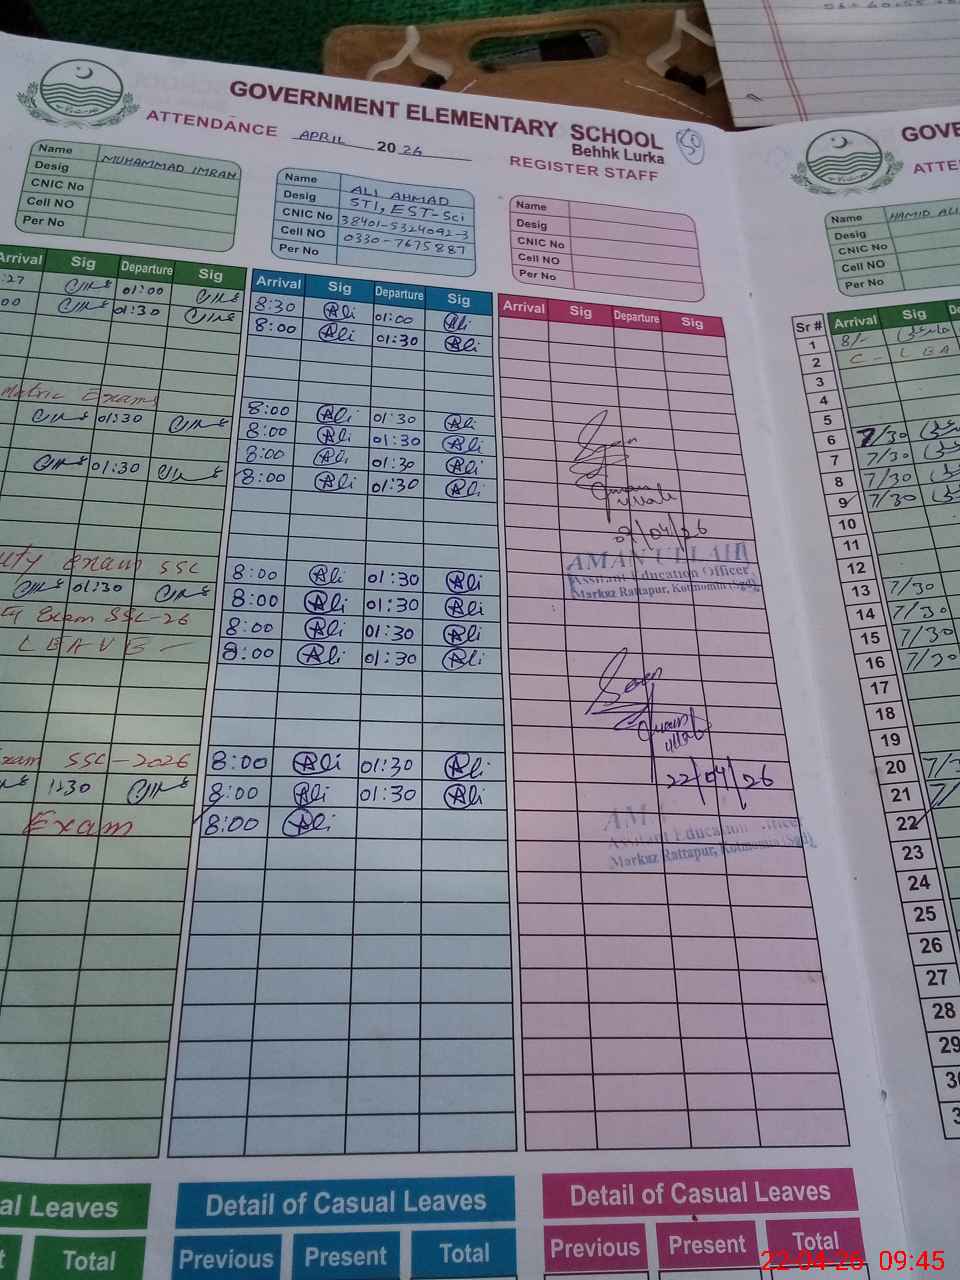 GOVERNMENT ELEMENTARY SCHOOL
Behhk Lurka
ATTENDANCE APRIL 2026 REGISTER STAFF
50
Name MUHAMMAD IMRAN
Desig
CNIC No
Cell NO
Per No
Name ALI AHMAD
Desig STI, EST-Sci
CNIC No 38401-5324092-3
Cell NO 0330-7675887
Per No
Name
Desig
CNIC No
Cell NO
Per No
Arrival Sig Departure Sig
:27 01:00
00 01:30
Matric Exams
01:30
01:30
Duty exam SSC
01:30
Exam SSC-26
LEAVE
Exam SSC-2026
1:30
Exam
Arrival Sig Departure Sig
8:30 Ali 01:00 Ali
8:00 Ali 01:30 Ali
8:00 Ali 01:30 Ali
8:00 Ali 01:30 Ali
8:00 Ali 01:30 Ali
8:00 Ali 01:30 Ali
8:00 Ali 01:30 Ali
8:00 Ali 01:30 Ali
8:00 Ali 01:30 Ali
8:00 Ali 01:30 Ali
8:00 Ali 01:30 Ali
8:00 Ali 01:30 Ali
8:00 Ali
Arrival Sig Departure Sig
/04/26
AMAN ULLAH
Assitant Education Officer,
Markaz Rattapur, Kotmomin (Sgd)
22/04/26
Assitant Education Officer
Markaz Rattapur, Kotmomin (Sgd)
al Leaves
Total
Detail of Casual Leaves
Previous Present Total
Detail of Casual Leaves
Previous Present Total
GOVE
ATTEN
Name HAMID ALI
Desig
CNIC No
Cell NO
Per No
Sr # Arrival Sig De
1 8/-
2 C - LEA
3
4
5
6 7/30
7 7/30
8 7/30
9 7/30
10
11
12
13 7/30
14 7/30
15 7/30
16 7/30
17
18
19
20 7/3
21 7/
22
23
24
25
26
27
28
29
30
3
22-04-26 09:45